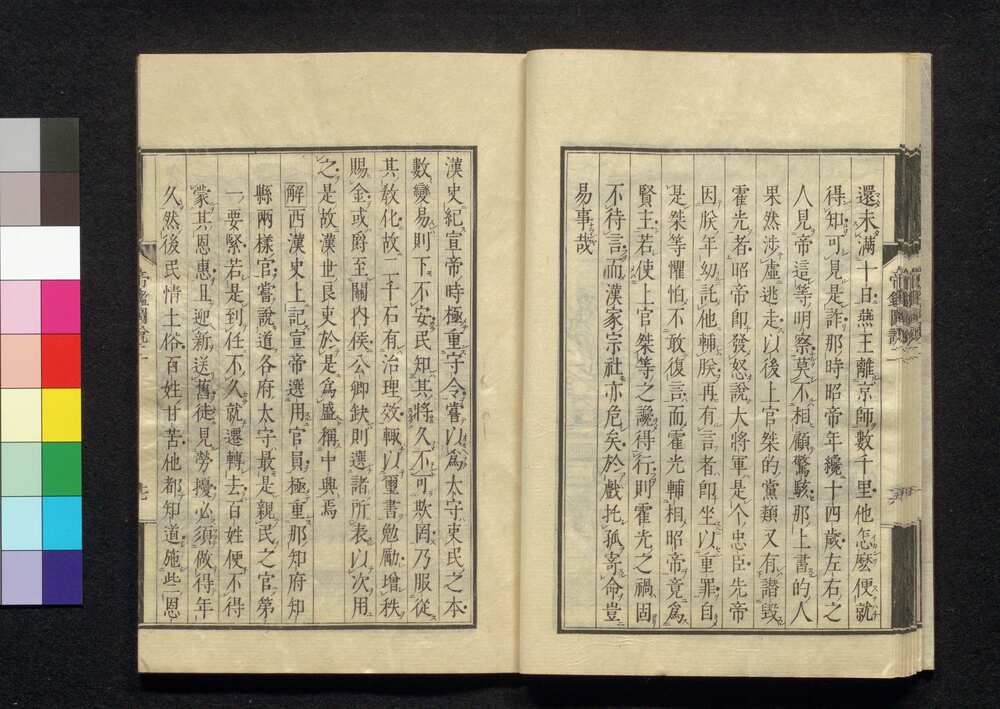 還未滿十日燕王離京師數千里他怎麼便就
得知可見是詐那時昭帝年纔十四歲左右之
人見帝這等明察莫不相顧驚駭那上書的人
果然涉虛逃走以後上官桀的黨類又有譖毀
霍光者昭帝即發怒說大將軍是个忠臣先帝
因朕年幼託他輔朕再有言者即坐以重罪自
是桀等懼怕不敢復言而霍光輔相昭帝竟為
賢主若使上官桀等之讒得行則霍光之禍固
不待言而漢家宗社亦危矣於戲托孤寄命豈
易事哉
漢史紀宣帝時極重守令嘗以為太守吏民之本
數變易則下不安民知其將久不可欺罔乃服從
其教化故二千石有治理效輒以璽書勉勵增秩
賜金或爵至關內侯公卿缺則選諸所表以次用
之是故漢世良吏於是為盛稱中興焉
解西漢史上記宣帝選用官員極重那知府知
縣兩樣官嘗說道各府太守最是親民之官第
一要緊若是到任不久就遷轉去百姓便不得
蒙其恩惠且迎新送舊徒見勞擾必須做得年
久然後民情土俗百姓甘苦他都知道施些恩
帝鑑圖說